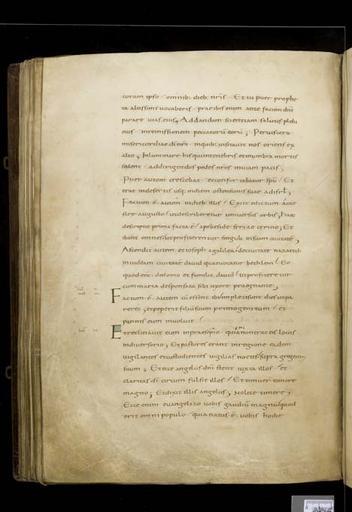 coram ipso omnib; dieb; nr̄is Et tu puer prophe
ta altissimi uocaberis praeibis enim ante faciem dn̄i
parare uias eius, Ad dandam scientiam salutis plebi
eius in remissionem peccatorū eorū; Per uiscera
misericordiae dī nr̄i in quib; uisitauit nos oriens ex
alto; Inluminare his qui in tenebris et in umbra mortis
sedent ad dirigendos pedes nr̄os in uiam pacis;
Puer autem crescebat et confortabatur sp̄u Et
erat in desertis usq; in diem ostensionis suae ad isrl̄;
Factum ē autem in dieb; illis Exiit edictum a caesa
re augusto ut describeretur uniuersus orbis; Haec
descriptio prima facta ē a praeside syriae cyrino; Et
ibant omnes ut profiterentur singuli in suam ciuitatē;
Ascendit autem et ioseph a galilea de ciuitate nazareth
in iudaeam ciuitatē dauid quae uocatur bethleem Eo
quod esset de domo et familia dauid ut profiteretur
cum maria desponsata sibi uxore praegnante;
Factum ē autem cū essent ibi impleti sunt dies ut pa
reret et peperit filium suum primogenitum et
pannis eum inuoluit
Et reclinauit eum in praesepio quia non erat eis locus
in diuersorio; Et pastores erant in regione eadem
uigilantes et custodientes uigilias noctis supra gregem
suum; Et ecce angelus dn̄i stetit iuxta illos et
claritas dī circum fulsit illos Et timuer timore
magno; Et dixit illis angelus; Nolite timere;
Ecce enim euangelizo uobis gaudiū magnū quod
erit omni populo quia natus ē uobis hodie